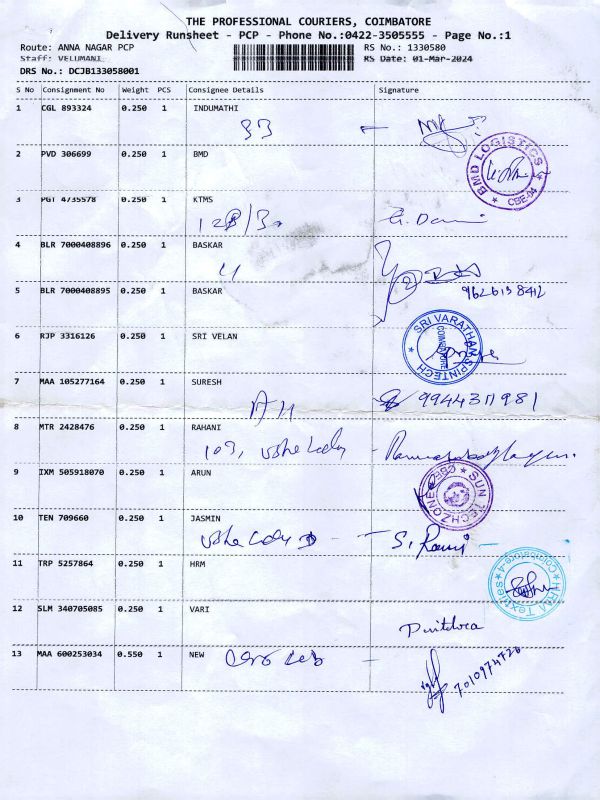 THE PROFESSIONAL COURIERS, COIMBATORE
Delivery Runsheet - PCP - Phone No.:0422-3505555 - Page No.:1
Route: ANNA NAGAR PCP RS No.: 1330580
Staff: VELUMANI RS Date: 01-Mar-2024
DRS No.: DCJB133058001
S No Consignment No Weight PCS Consignee Details Signature
1 CGL 893324 0.250 1 INDUMATHI
33
2 PVD 306699 0.250 1 BMD
BMD LOGISTICS CBE-04
3 PGT 4735578 0.250 1 KTMS
4 BLR 7000408896 0.250 1 BASKAR
4 2
5 BLR 7000408895 0.250 1 BASKAR 9626138412
6 RJP 3316126 0.250 1 SRI VELAN
SRI VARATHAN SPINTECH COIMBATORE
7 MAA 105277164 0.250 1 SURESH
9944311981
8 MTR 2428476 0.250 1 RAHANI
103,
9 IXM 505918070 0.250 1 ARUN
SUN TECHZONE
10 TEN 709660 0.250 1 JASMIN
S. Rami
11 TRP 5257864 0.250 1 HRM
HRM Textiles Coimbatore-4
12 SLM 340705085 0.250 1 VARI
13 MAA 600253034 0.550 1 NEW
7010974726